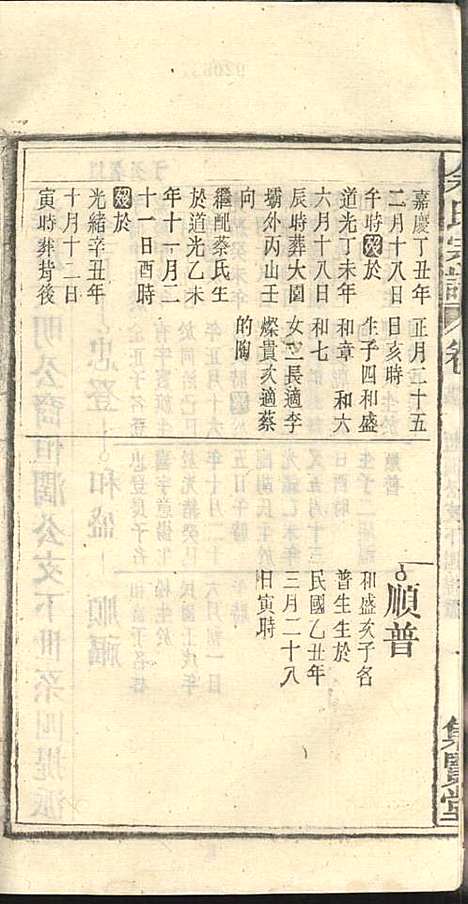 余氏宗譜 卷
集賢堂
嘉慶丁丑年
二月十八日
午時歿於
道光丁未年
六月十八日
辰時葬大園
壩外丙山壬
向
繼配蔡氏生
於道光乙未
年十一月二
十一日酉時
歿於
光緒辛丑年
十月十二日
寅時葬背後
正月二十五
日亥時
生子四和盛
和章 和六
和七
女二長適李
燦貴次適蔡
的陶
順普
和盛次子名
普生生於
民國乙丑年
三月二十八
日寅時